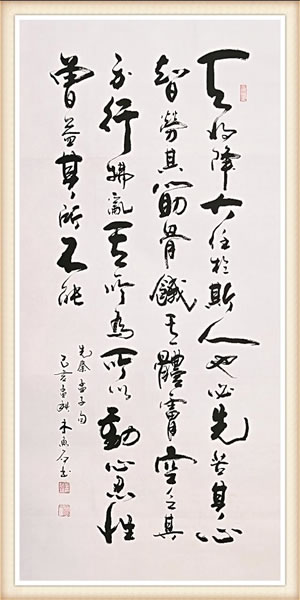 天将降大任於斯人也必先苦其心
智勞其筋骨餓其體膚空乏其
身行拂亂其所為所以動心忍性
曾益其所不能
先秦孟子句
己亥 木魚石書